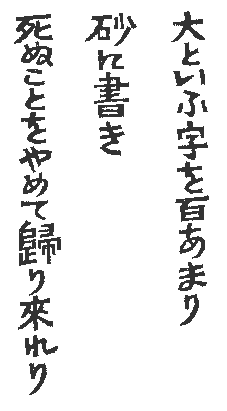 大といふ字を百あまり
砂に書き
死ぬことをやめて歸り來れり